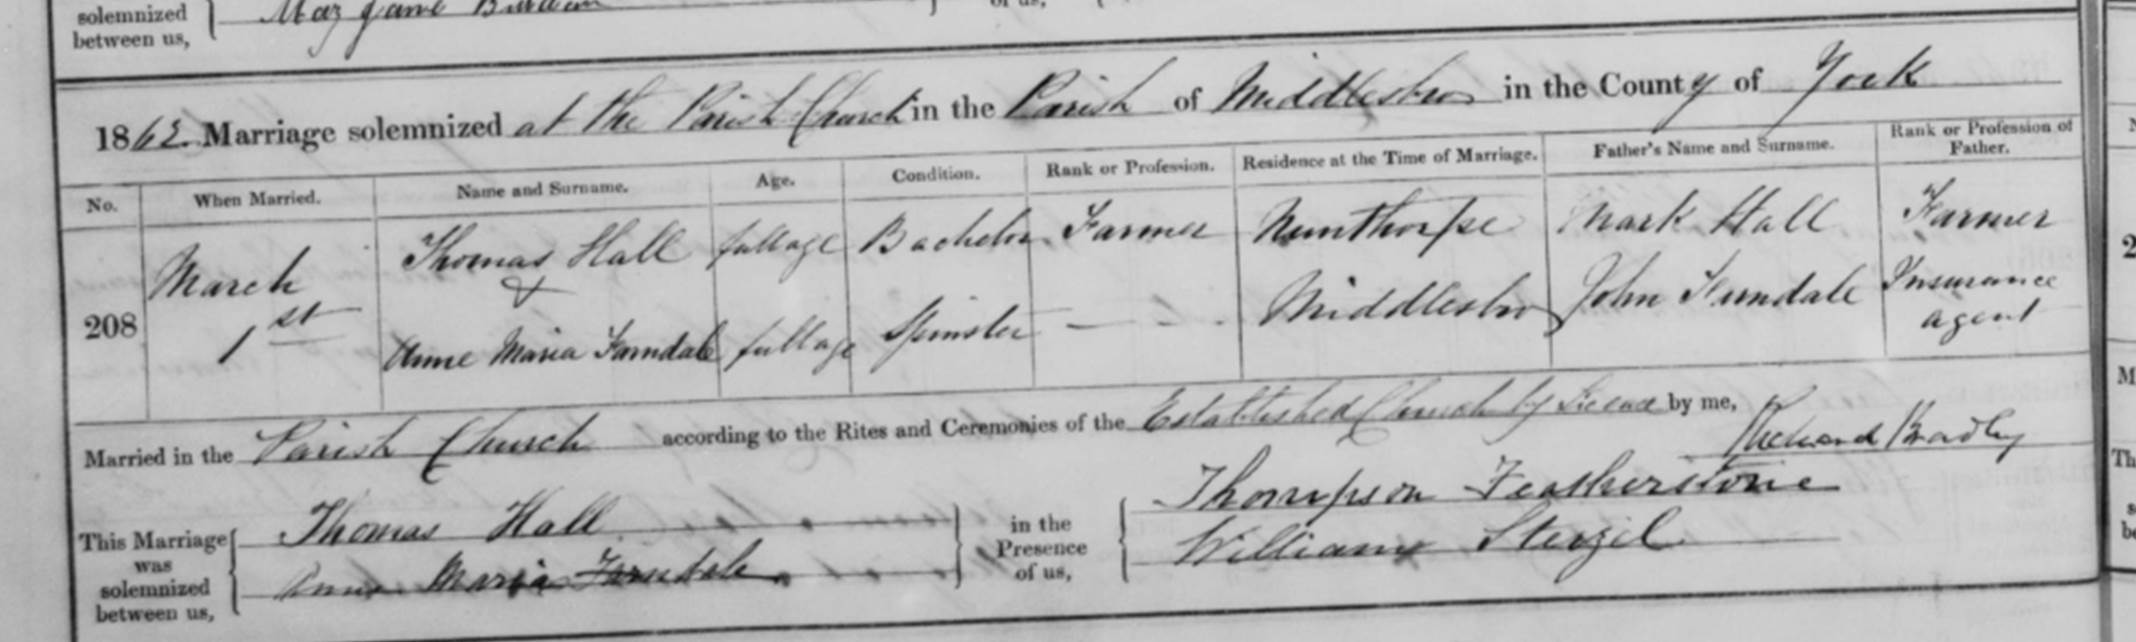 solemnized
between us,
Mary Jane
1862 Marriage solemnized at the Parish Church in the Parish of Middlesbro in the County of York
No. When Married. Name and Surname. Age. Condition. Rank or Profession. Residence at the Time of Marriage. Father's Name and Surname. Rank or Profession of Father.
208 March 1st Thomas Hall full age Bachelor Farmer Nunthorpe Mark Hall Farmer
&
Anne Maria Farndale full age Spinster — Middlesbro John Farndale Insurance agent
Married in the Parish Church according to the Rites and Ceremonies of the Established Church by Licence by me,
Richard Bradley
This Marriage was solemnized between us, Thomas Hall
Anne Maria Farndale
in the Presence of us, Thompson Featherstone
William Stenzel